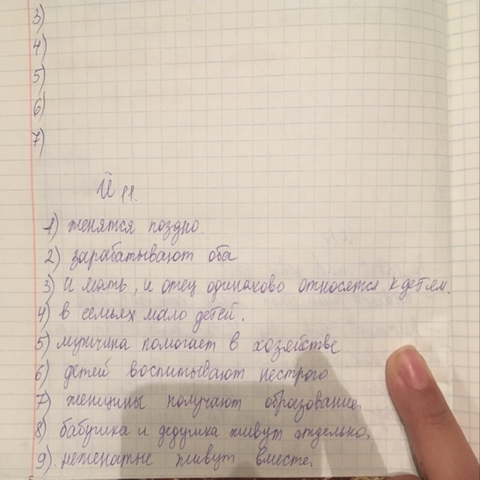 3)
4)
5)
6)
7)
11.
1) женятся поздно.
2) зарабатывают оба
3) и мать, и отец одинаково относятся к детям.
4) в семьях мало детей.
5) мужчина помогает в хозяйстве
6) детей воспитывают нестрого
7) женщины получают образование,
8) бабушка и дедушка живут отдельно,
9) неженатые живут вместе,